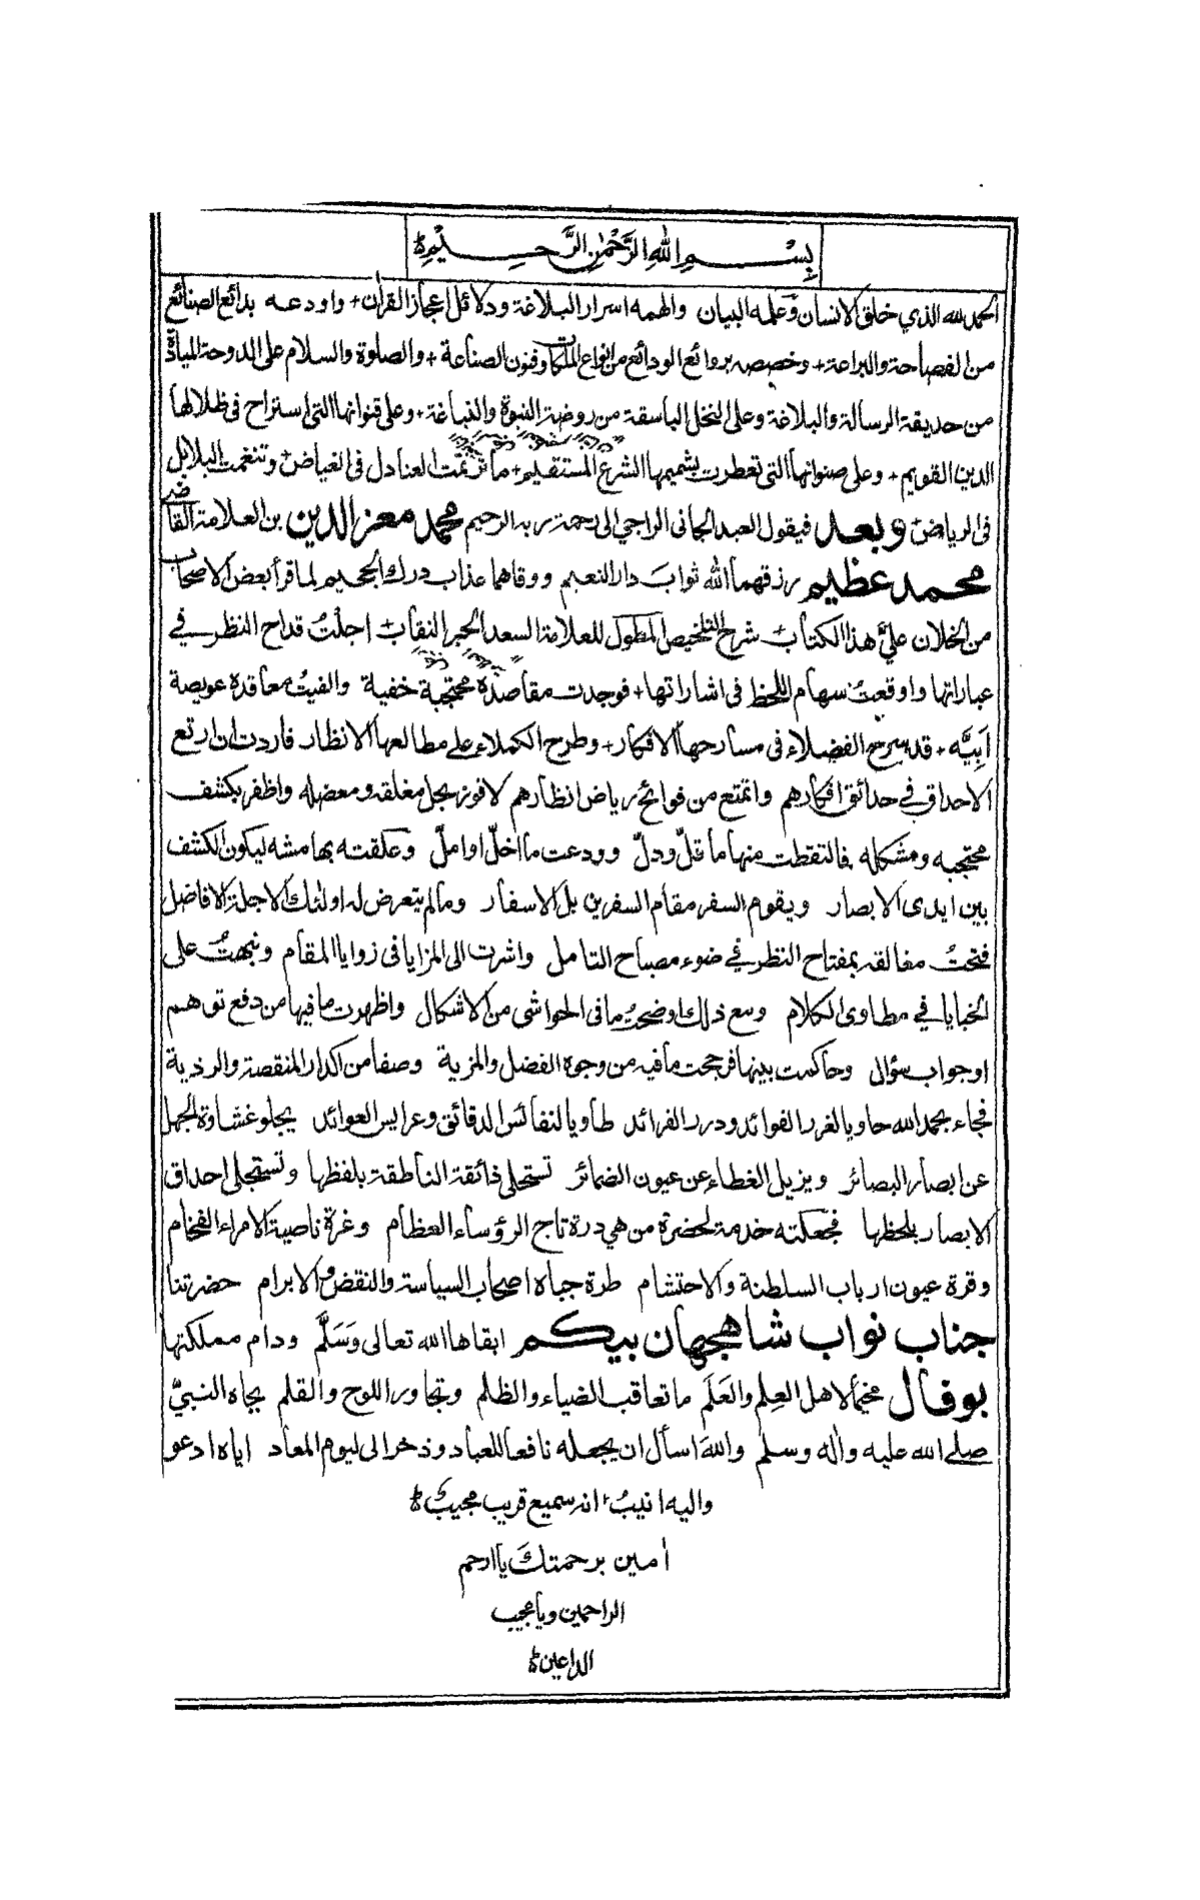 بِسْمِ اللهِ الرَّحْمٰنِ الرَّحِيْمِ
الحمد لله الذي خلق الانسان وعلمه البيان والهمه اسرار البلاغة ودلائل اعجاز القران + واودعه بدائع الصنائع
من الفصاحة والبراعة + وخصصه بروائع الودائع من انواع الملكات وفنون الصناعة + والصلوة والسلام على الدوحة الميادة
من حديقة الرسالة والبلاغة وعلى النخل الباسقة من روضة النبوة والنباغة + وعلى قنوانها التى استراح فى ظلالها
الدين القويم + وعلى صنوانها التى تعطرت بشميمها الشرع المستقيم + ما ترنمت العنادل فى الغياض + وتنغمت البلابل
فى الرياض + وبعد فيقول العبد الجانى الراجي الى رحمة ربه الرحيم محمد معز الدين بن العلامة القاضى
محمد عظيم رزقهما الله ثوابَ دار النعيم ووقاهما عذاب درك الجحيم لما قرأ بعض الاصحاب
من الخلان عليَّ هذا الكتاب + شرح التلخيص المطول للعلامة السعد الحبر النقاب + اجلْتُ قداح النظر في
عباراتها واوقعتُ سهام اللحظ فى اشاراتها + فوجدت مقاصده محتجبة خفية والفيتُ معاقده عويصة
اَبِيَّه + قد سرح الفضلاء فى مسارحها الافكار + وطرح الكملاء على مطالعها الانظار فاردت ان ارتع
الاحداق في حدائق افكارهم واتمتع من فوائح رياض انظارهم لافوز بحل مغلقه ومعضله واظفر بكشف
محتجبه ومشكله فالتقطت منها ما قلّ ودلّ وودعت ما اخلّ او املّ وعلقته بهامشه ليكون الكشف
بين ايدى الابصار ويقوم السفر مقام السفرين بل الاسفار وما لم يتعرض له اولئك الاجلة الافاضل
فتحتُ مغالقه بمفتاح النظر في ضوء مصباح التامل واشرت الى المزايا فى زوايا المقام ونبهتُ على
الخبايا في مطاوى الكلام ومع ذلك اوضحتُ ما فى الحواشى من الاشكال واظهرت ما فيها من دفع توهم
او جواب سؤال وحاكمت بينها فرجحت ما فيه من وجوه الفضل والمزية وصفا من اكدار المنقصة والرذية
فجاء بحمد الله حاويا لغرر الفوائد ودرر الفرائد طاويا لنفائس الدقائق وعرايس العوائد يجلو غشاوة الجهل
عن ابصار البصائر ويزيل الغطاء عن عيون الضمائر تستحلى ذائقة الناطقة بلفظها وتستجلى احداق
الابصار بلحظها فجعلته خدمة لحضرة من هي درة تاج الرؤساء العظام وغرة ناصية الامراء الفخام
وقرة عيون ارباب السلطنة والاحتشام طرة جباه اصحاب السياسة والنقض والابرام حضرتنا
جناب نواب شاهجهان بيكم ابقاها الله تعالى وَسَلَّم ودام مملكتها
بوفال مخيّما لاهل العِلم والعَلَم ما تعاقب الضياء والظلم وتجاور اللوح والقلم بجاه النبيّ
صلى الله عليه واٰله وسلم واللهَ اسأل ان يجعله نافعا للعباد وذخرا لى ليوم المعاد اياه ادعو
واليه انيبُ انه سميع قريب مجيب
اٰمين برحمتك يا ارحم
الراحمين ويا مجيب
الداعين